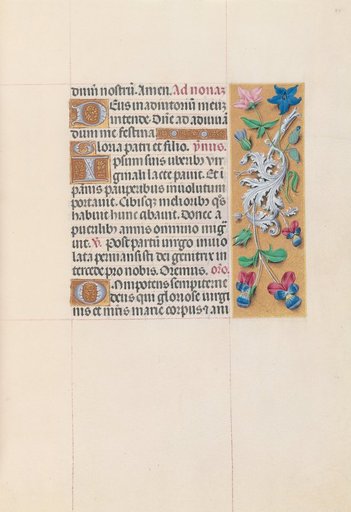 dnm nostrū. Amen. Ad nonaz
Deus in adiutoriū meuz
intende. Dn̄e ad adiuuā
dum me festina.
Gloria patri et filio. ymnus.
Ipsum suis uberibus vir
ginali lacte pauit. Et i
panis pauperibus inuolutum
portauit. Cibisqz
habuit hunc cibauit. Donec a
puerilibus annis omnino
v̄. Post partū virgo inuio
lata permansisti dei genitrix in
tercede pro nobis. Oremus. oro.
Omnipotens sempiterne
deus qui gloriose virgi
nis et mr̄is marie corpus & ani